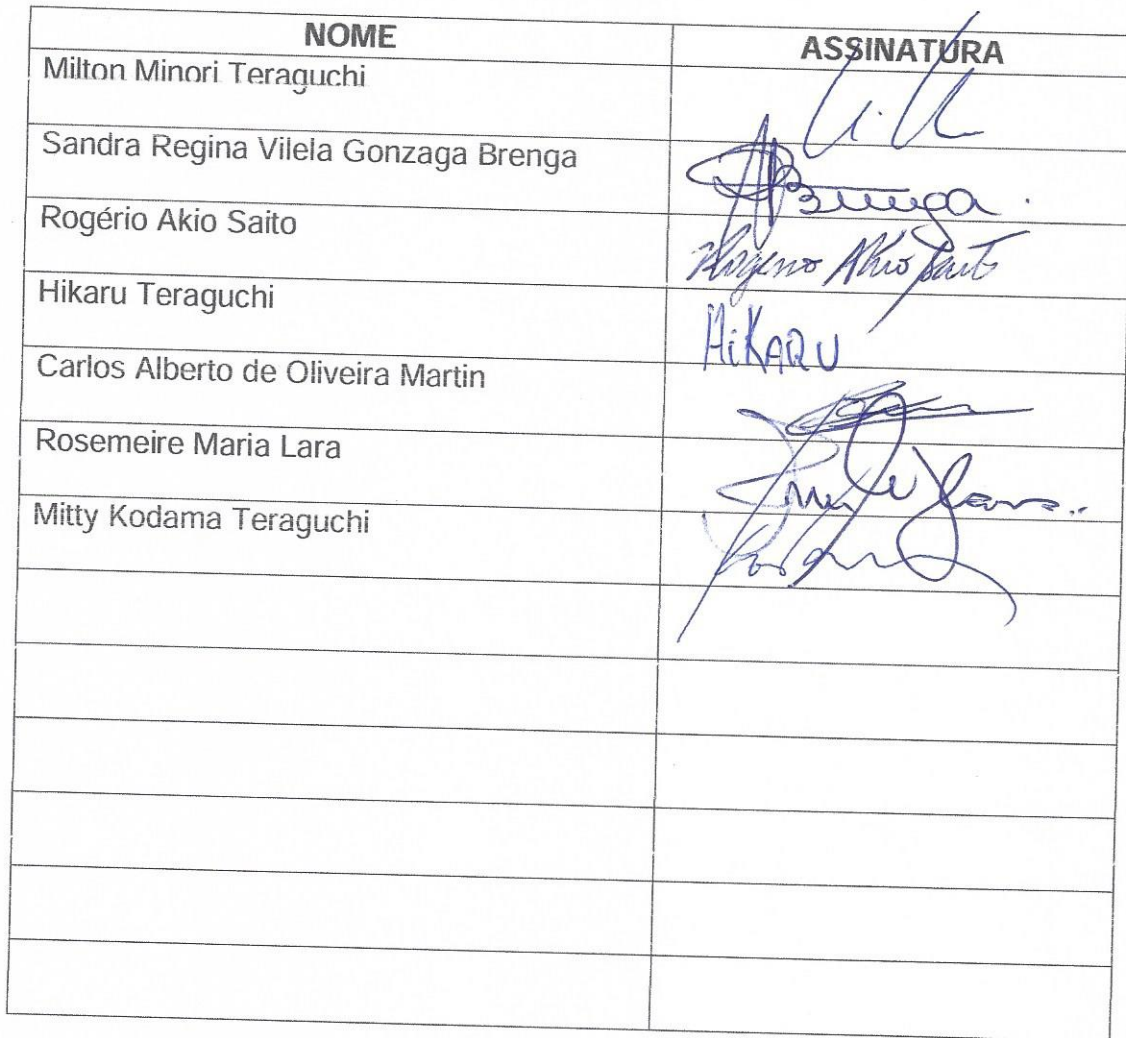 NOME ASSINATURA
Milton Minori Teraguchi
Sandra Regina Vilela Gonzaga Brenga Brenga.
Rogério Akio Saito Rogerio Akio Saito
Hikaru Teraguchi HiKARU
Carlos Alberto de Oliveira Martin
Rosemeire Maria Lara Lara..
Mitty Kodama Teraguchi